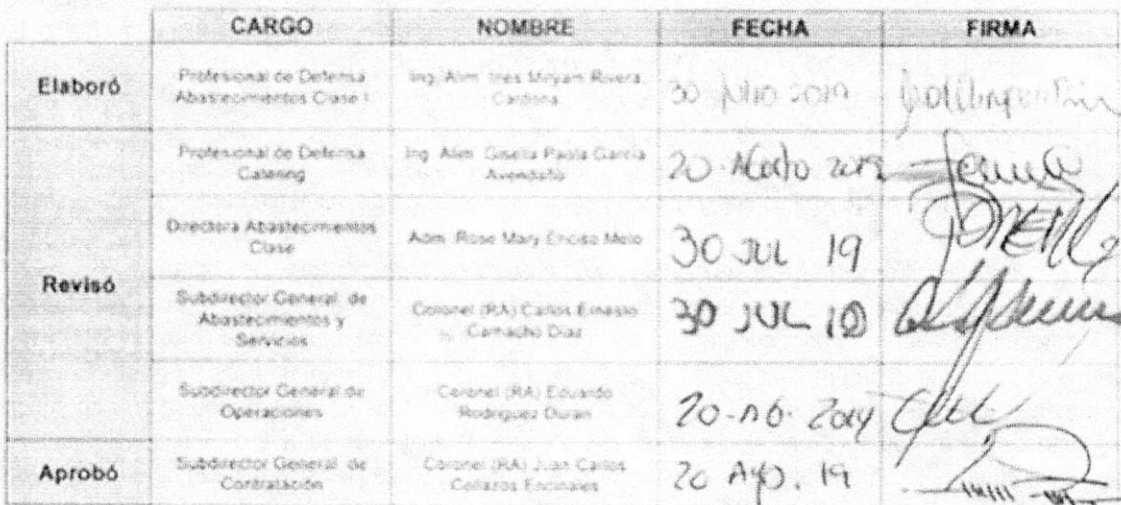 CARGO NOMBRE FECHA FIRMA
Elaboró
Profesional de Defensa
Abastecimientos Clase I
Ing. Alim. Ines Miryam Rivera
Cardona
30 Julio 2019
Profesional de Defensa
Catering
Ing. Alim. Gisella Paola García
Avendaño
20 Agosto 2019
Revisó
Directora Abastecimientos
Clase
Adm. Rose Mary Enciso Melo
30 JUL 19
Subdirector General de
Abastecimientos y
Servicios
Coronel (RA) Carlos Ernesto
Camacho Diaz
30 JUL 19
Subdirector General de
Operaciones
Coronel (RA) Eduardo
Rodriguez Duran
20-AG-2019
Aprobó
Subdirector General de
Contratación
Coronel (RA) Juan Carlos
Collazos Encinales
20 Ago. 19